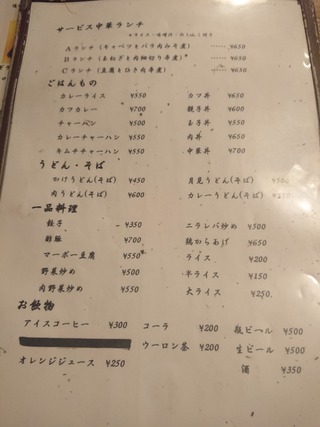 サービス中華ランチ
＊ライス・味噌汁・おしんこ付き
Aランチ(キャベツとバラ肉みそ煮) ‥‥‥ ¥650
Bランチ(玉ねぎと肉細切り辛煮) ‥‥‥ ¥650
Cランチ(豆腐とひき肉辛煮) ‥‥‥ ¥650
ごはんもの
カレーライス ¥550 カツ丼 ¥650
カツカレー ¥700 親子丼 ¥600
チャーハン ¥500 玉子丼 ¥550
カレーチャーハン ¥550 肉丼 ¥650
キムチチャーハン ¥550 中華丼 ¥700
うどん・そば
かけうどん(そば) ¥450 月見うどん(そば)
肉うどん(そば) ¥600 カレーうどん(そば)
一品料理
餃子 ¥350 ニラレバ炒め ¥500
酢豚 ¥700 鶏からあげ ¥650
マーボー豆腐 ¥550 ライス ¥200
野菜炒め ¥500 半ライス ¥150
肉野菜炒め ¥550 大ライス ¥250
お飲物
アイスコーヒー ¥300 コーラ ¥200 瓶ビール ¥500
ウーロン茶 ¥200 生ビール ¥500
オレンジジュース ¥250 酒 ¥350